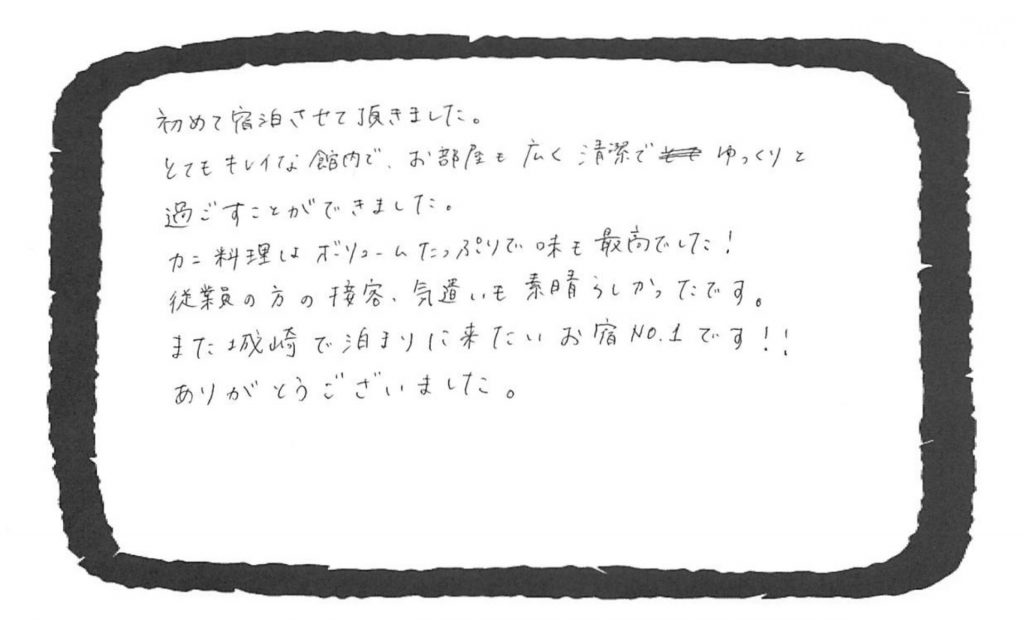 初めて宿泊させて頂きました。
とてもキレイな館内で、お部屋も広く清潔でゆっくりと
過ごすことができました。
カニ料理はボリュームたっぷりで味も最高でした!
従業員の方の接客、気遣いも素晴らしかったです。
また城崎で泊まりに来たいお宿NO.1です!!
ありがとうございました。